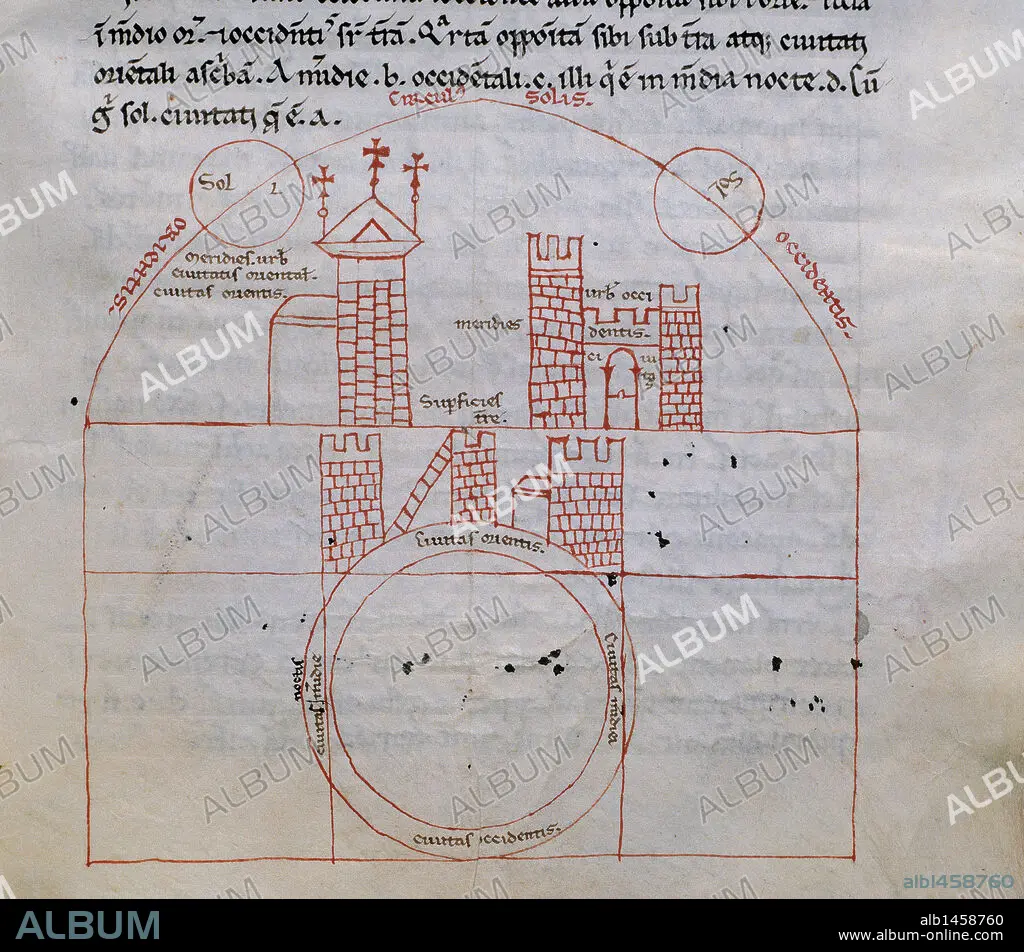 i mdio or̃. ⁊ occidnti sr̃ tr̃a. Qrta oppoita sibi sub tr̃a atq; ciuitati
orientali ascba. A mdie .b. occidentali .c. illi q̃ e in media nocte .d. Su
g̃ sol. ciuitati q̃ e .a.
Circulus Solis.
Sol
Sol
orientis.
occidentis.
Meridies. urb
ciuitatis oriental.
ciuitas orientis.
meridies
urb occi
dentis.
ci ui
tas
Supficies
tre.
Ciuitas orientis.
noctis
Ciuitas mdie
Ciuitas mdiei
ciuitas occidentis.
ALBUM
alb1458760
ALBUM
alb1458760
www.album-online.com